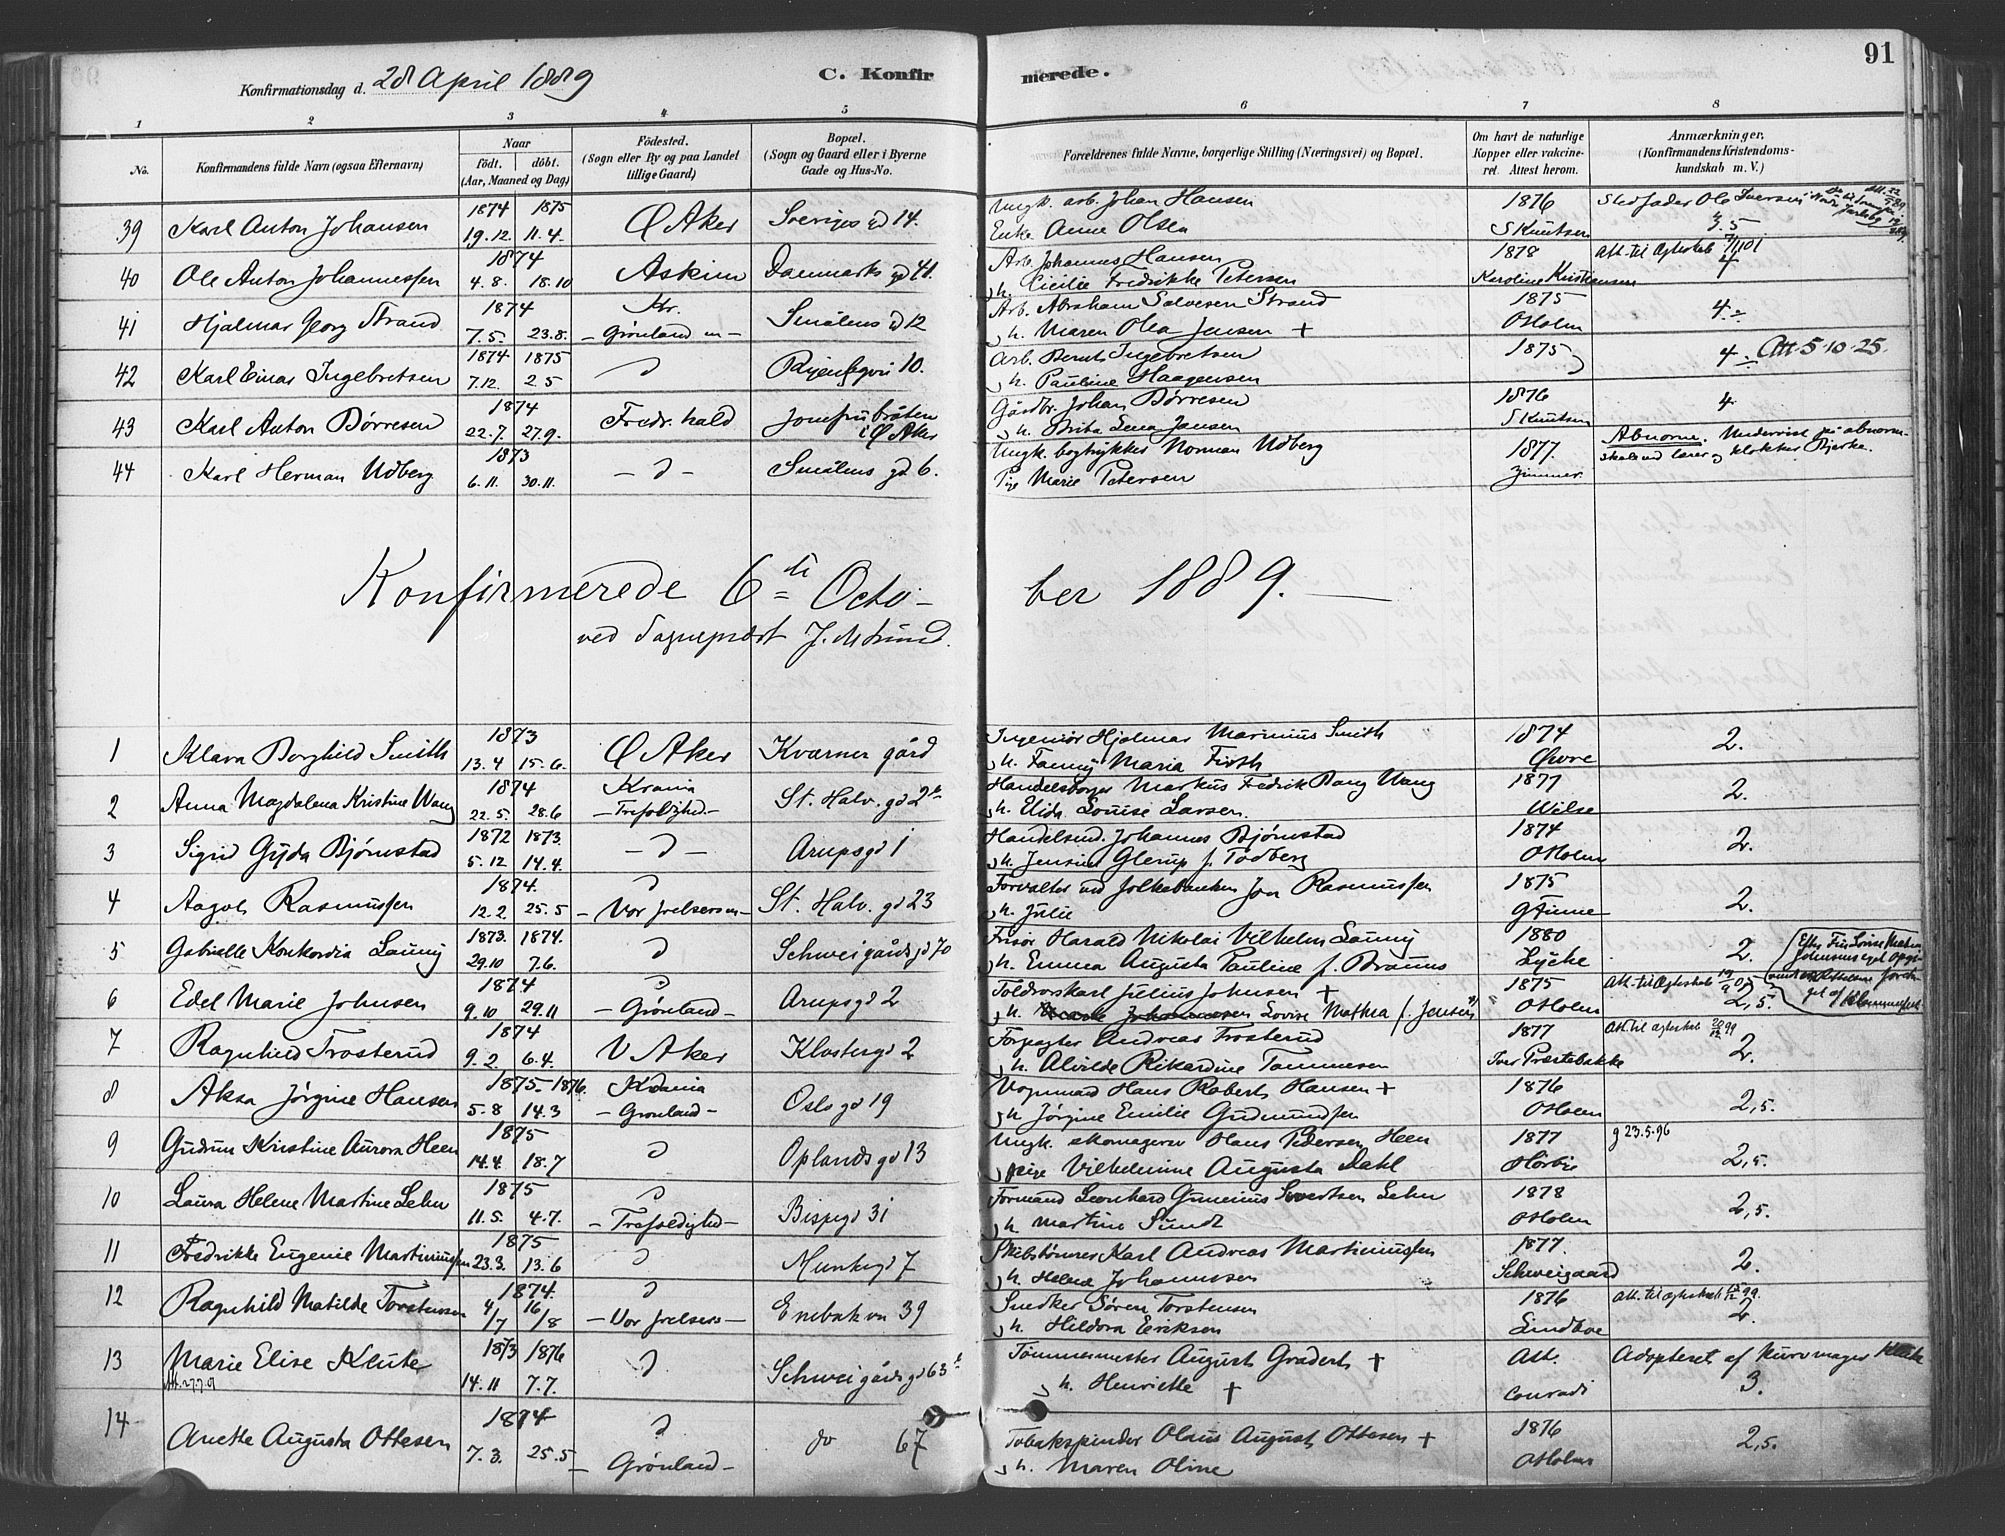 91
Konfirmationsdag d. 28 April 1889
C. Konfirmerede.
1 2 3 4 5 6 7 8
No.
Konfirmandens fulde Navn (ogsaa Efternavn)
Naar
födt. döbt.
(Aar, Maaned og Dag)
Födested.
(Sogn eller By og paa Landet
tillige Gaard)
Bopæl.
(Sogn og Gaard eller i Byerne
Gade og Hus-No.
Forældrenes fulde Navne, borgerlige Stilling (Næringsvei) og Bopæl.
Om havt de naturlige
Kopper eller vakcine-
ret. Attest herom.
Anmærkninger.
(Konfirmandens Kristendoms-
kundskab m. V.)
39 Karl Anton Johansen 1874 1875 19.12. 11.4. Ø Aker Sverigesgd 14.
Ungk. arb. Johan Hansen
Enke Anne Olsen
1876 S Knutsen
Stedfader Ole Iversen
3.5
40 Ole Anton Johannessen 1874 4.8. 18.10 Askim Danmarks gd 41.
Arb. Johannes Hansen
h. Cicilie Fredrikke Petersen
1878 Karoline Kristiansen
Att. til Ægteskab
41 Hjalmar Georg Strand 1874 7.5. 23.8. Kr. Grønland Smålens gd 12
Arb. Abraham Salvesen Strand
h. Maren Olea Jensen +
1875 O Holm
4
42 Karl Einar Ingebretsen 1874 1875 7.12. 2 5 Ryensvn 10.
Arb. Bernt Ingebretsen
h. Pauline Haagensen
1875
4 Att 5.10.25.
43 Karl Anton Børresen 1874 22.7. 27.9. Fredr.hald Jomfrubråten
i Ø Aker
Gårdbr. Johan Børresen
h. Brita Lena Jansen
1876 S Knutsen
4.
44 Karl Herman Udberg 1873 6.11. 30.11. Smålens gd 6.
Ungk. bogtrykker Norman Udberg
Pige Marie Petersen
1877. Zimmer.
Abnorm. Undervist på abnorm-
skole ved lærer og klokker Bjerke.
Konfirmerede 6te October 1889.
ved Sognepræst J. M. Lund.
1 Klara Borghild Smith 1873 13.4 15.6. Ø Aker Kværner gård
Ingeniør Hjalmar Marinius Smith
h. Fanny Maria Firth
1874 Øvre
2.
2 Anna Magdalena Kristine Wang 1874 22.5. 28.6 Krania Trefoldighed St. Halv. gd 2b
Handelsborger Markus Fredrik Bang Wang
h. Elida Louise Larsen.
1877 Wilse
2.
3 Sigrid Gyda Bjørnstad 1872 1873. 5.12 14.4. Arupsgd 1
Handelsmd. Johannes Bjørnstad
h. Jensine Glerup f. Todberg
1874 O Holm
2.
4 Aagot Rasmussen 1874. 12.2. 25.5 Vor frelsers St. Halv. gd 23
Forvalter ved folkebanken Rasmussen
h. Julie
1875 G Finne
2.
5 Gabrielle Konkordia Launy 1873. 1874. 29.10 7.6. Schweigårdsgd 70
Frisør Harald Nikolai Vilhelm Launy
h. Emma Augusta Pauline f. Brauns
1880 Lyche
2.
6 Edel Marie Johnsen 1874 9.10 29.11 Grønland Arupsgd 2
Toldvorskarl Julius Johnsen +
h. Lovise Mathea f. Jensen
1875 O Holm
Att. til Ægteskab
2,5
7 Ragnhild Trosterud 1874 9.2. 6.4. V Aker Klostergd 2
Forpagter Andreas Trosterud
h. Alvilde Rikardine Tommesen
1877 Iver Præstebakke
Att til ægteskab 99
2.
8 Aksa Jørgine Hansen 1875 1876. 5.8 14.3 Krania Grønland Oslo gd 19
Vognmand Hans Robert Hansen +
h Jørgine Emilie Gudmundsen
1876 O Holm
2,5.
9 Gudrun Kristine Aurora Heen 1875 14.4. 18.7 Oplandsgd 13
Ungk. skomagersv. Hans Pedersen Heen
pige Vilhelmine Augusta Dahl
1877 Hørbye
g 23.5.96
2,5.
10 Laura Helene Martine Lehn 1875 11.5. 4.7. Trefoldighed Bispegd 31
Formand Leonhard Gunerius Sivertsen Lehn
h Martine Sundt
1878 O Holm
2,5.
11 Fredrikke Eugenie Martinussen 1875 23.3. 13.6 Munkegd 7
Skibstømrer Karl Andreas Martinussen
h. Helene Johannesen
1877. Schweigaard
2.
12 Ragnhild Matilde Torstensen 1874. 4/7 16/8 Vor frelsers Enebakvn 39
Snedker Søren Torstensen
h. Hildora Eriksen
1876 Lindboe
Att. til ægteskab 99.
2.
13 Marie Elise Klute 1873 1876 14.11 7.7. Schweigårdsgd 63b
Att. 27.7.01
Tømmermester August Gradert +
h. Henriette +
Att. Conradi
Adopteret af kurvmager Klute
3.
14 Anette Augusta Ottesen 1874 7.3. 25.5 Grønland do 67
Tobakspinder Olaus August Ottesen +
h. Maren Oline
1876 O Holm
2,5.